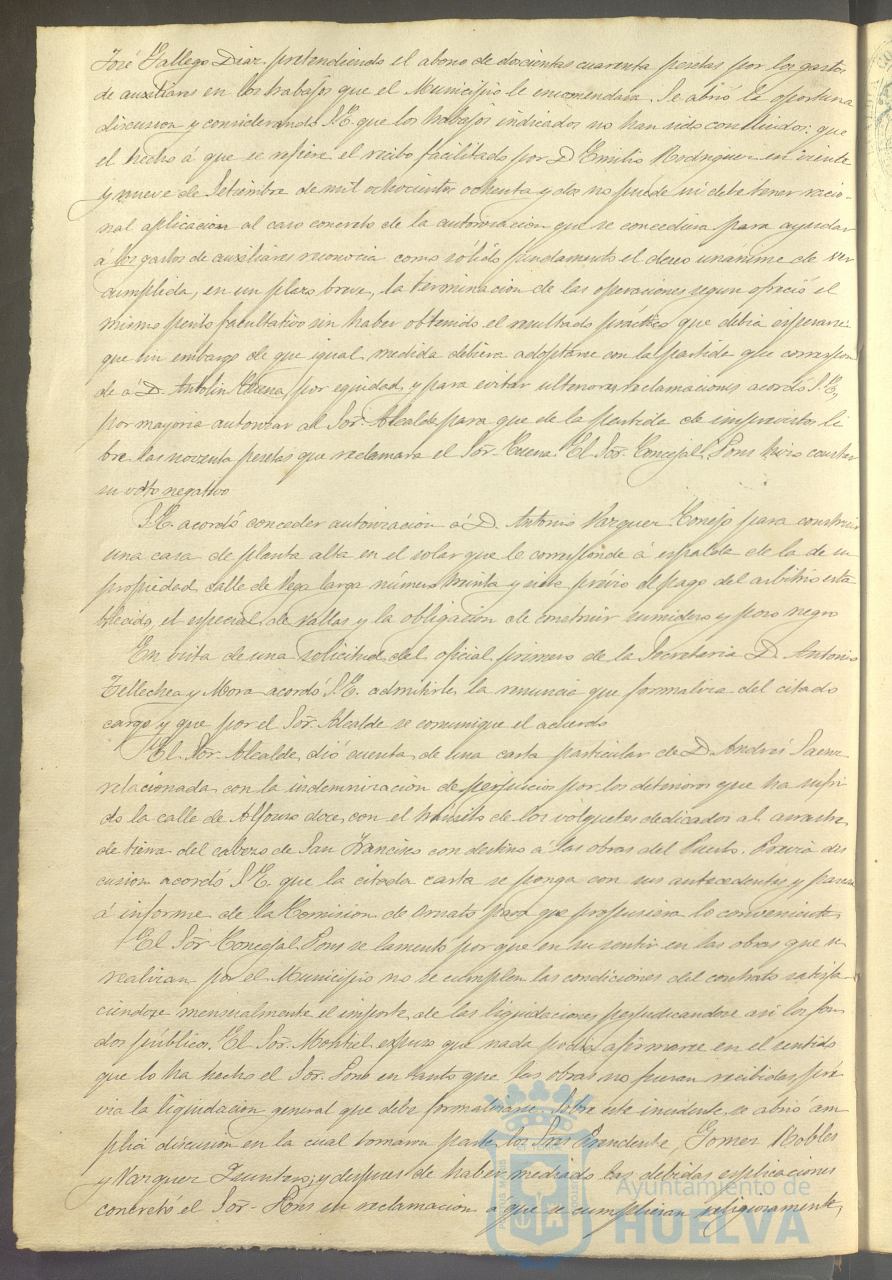 José Gallego Diaz pretendiendo el abono de doscientas cuarenta pesetas por los gastos
de auxiliares en los trabajos que el Municipio le encomendara. Se abrió la oportuna
discusion y considerando S.E. que los trabajos indicados no han sido concluidos: que
el hecho á que se refiere el recibo facilitado por D. Emilio Rodriguez en veinte
y nueve de Setiembre de mil ochocientos ochenta y dos no puede ni debe tener racio-
nal aplicacion al caso concreto de la autorizacion que se concediera para ayudar
á los gastos de auxiliares reconocia como sólido fundamento el deseo unánime de ver
cumplida, en un plazo breve, la terminacion de las operaciones segun ofreció el
mismo perito facultativo sin haber obtenido el resultado práctico que debia esperarse:
que sin embargo de que igual medida debiera adoptarse con la partida que correspon
de á D. Antolin Cuena, por equidad, y para evitar ulteriores reclamaciones acordó S.E,
por mayoria autorizar al Sor. Alcalde para que de la partida de imprevistos li
bre las noventa pesetas que reclamara el Sor. Cuena. El Sor. Concejal Pons hizo constar
su voto negativo
S.E. acordó conceder autorizacion á D. Antonio Vazquez Conejo para construir
una casa de planta alta en el solar que le corresponde á espalda de la de su
propiedad calle de Vega larga número treinta y siete prévio el pago del arbitrio esta
blecido, el especial de vallas y la obligacion de construir sumidero y pozo negro
En vista de una solicitud del oficial primero de la Secretaria D. Antonio
Tellechea y Mora acordó S.E. admitirle la renuncia que formaliza del citado
cargo y que por el Sor. Alcalde se comunique el acuerdo
El Sor. Alcalde dió cuenta de una carta particular de D. Andrés Saenz
relacionada con la indemnizacion de perjuicios por los deterioros que ha sufri
do la calle de Alfonso doce, con el tránsito de los volquetes dedicados al arrastre
de tierra del cabezo de San Francisco con destino á las obras del Puerto. Prévia dis
cusion acordó S.E. que la citada carta se ponga con sus antecedentes y pase
á informe de la Comision de Ornato para que propusiera lo conveniente
El Sor. Concejal Pons se lamentó por que en su sentir en las obras que se
realizan por el Municipio no se cumplen las condiciones del contrato satisfa
ciendose mensualmente el importe de las liquidaciones perjudicandose asi los fon
dos públicos. El Sor. Montiel expuso que nada podia afirmarse en el sentido
que lo ha hecho el Sor. Pons en tanto que las obras no fueran recibidas pré
via la liquidacion general que debe formalizarse. Sobre este incidente se abrió am
plia discusion en la cual tomaron parte los Sres. Gomez Robles
y Vazquez Quintero; y despues de haber mediado las debidas esplicaciones
concretó el Sor. Pons su reclamacion á que se cumplieran religiosamente,
Ayuntamiento de
HUELVA